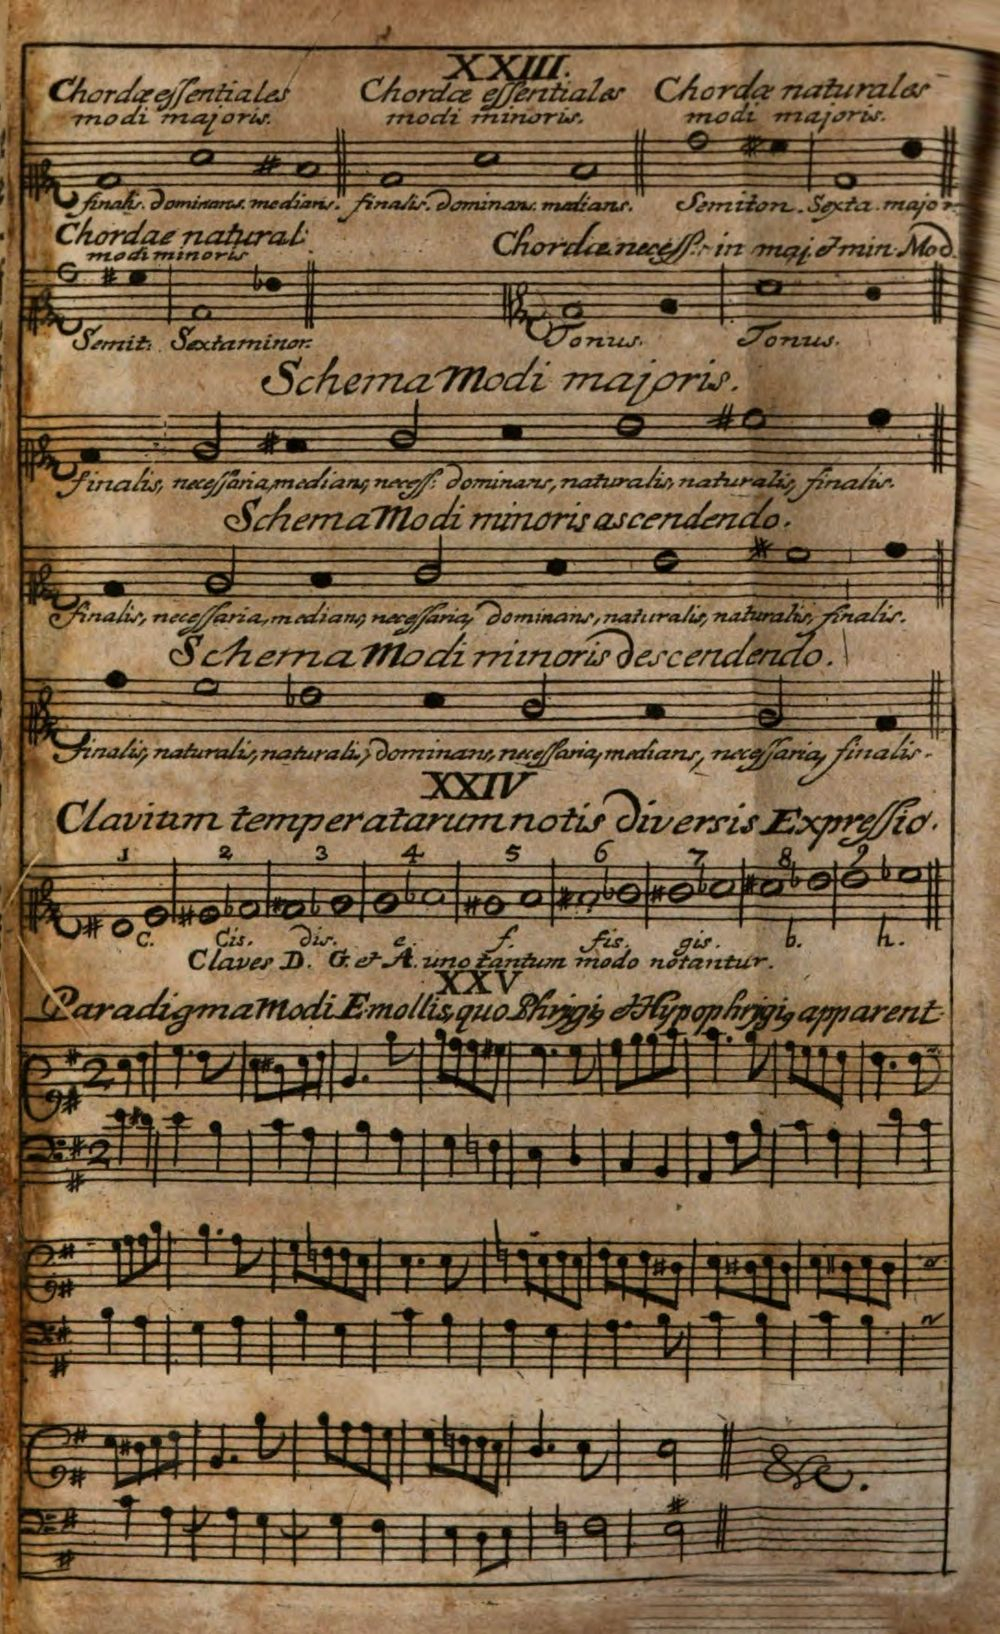 XXIII.
Chordæ eſſentiales Chordæ eſſentiales Chordæ naturales
modi majoris. modi minoris. modi majoris.
finalis. Dominans. medians. finalis. Dominans. medians. Semiton. Sexta major
Chordae natural:
modi minoris Chordæ neceſſ: in maj. & min. Mod.
Semit: Sexta minor. Tonus. Tonus.
Schema Modi majoris.
finalis, neceſſaria, medians, neceſſ: Dominans, naturalis, naturalis, finalis.
Schema Modi minoris ascendendo.
finalis, neceſſaria, medians, neceſſaria, Dominans, naturalis, naturalis, finalis.
Schema Modi minoris Descendendo.
finalis, naturalis, naturalis, Dominans, neceſſaria, medians, neceſſaria, finalis.
XXIV
Clavium temperatarum notis Diversis Expreſſio.
1 2 3 4 5 6 7 8 9
c. Cis. dis. e. f. fis. gis. b. h.
Claves D. G. & A. uno tantum modo notantur.
XXV
Paradigma Modi E mollis, quo Phrigi9 & Hypophrigi9 apparent
2
2
&c.